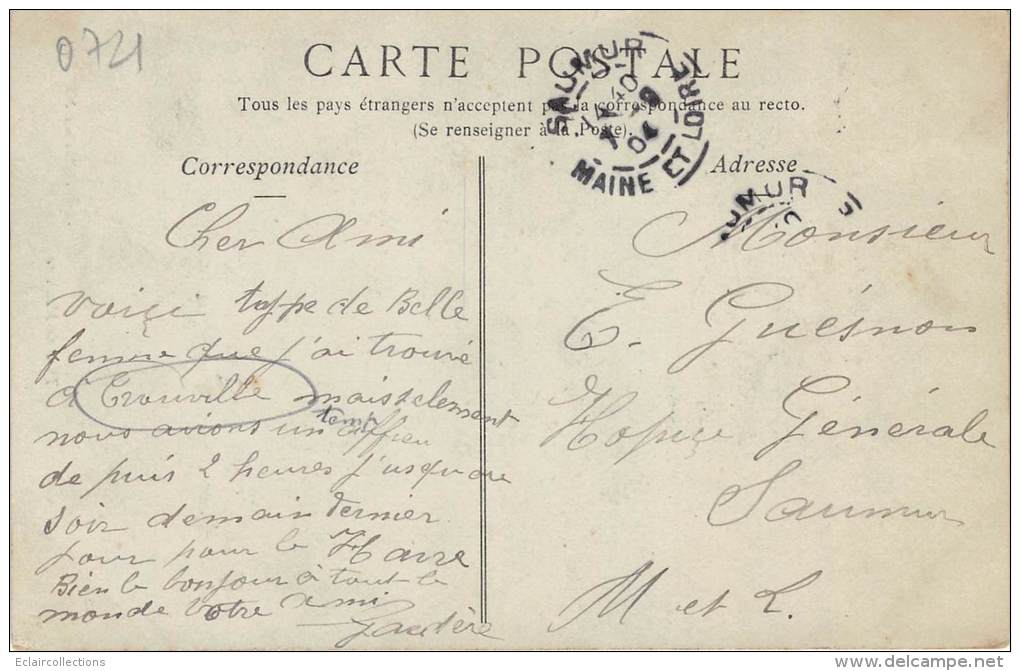 0721
CARTE POSTALE
Tous les pays étrangers n'acceptent pas la correspondance au recto.
(Se renseigner à la Poste).
SAUMUR
MAINE ET LOIRE
14 40
7 - 9
04
Correspondance
Adresse
UMUR
Cher Ami
voiçi type de Belle
femme que j'ai trouvé
à Trouville mais
nous avions un affreu
temps
de puis 2 heures j'usquau
soir demain dernier
jour pour le Havre
Bien le bonjour à tout le
monde Votre ami
Monsieur
E. Guésnon
Hospiçe Générale
Saumur
M et L.
Eclaircollections
delcampe.net